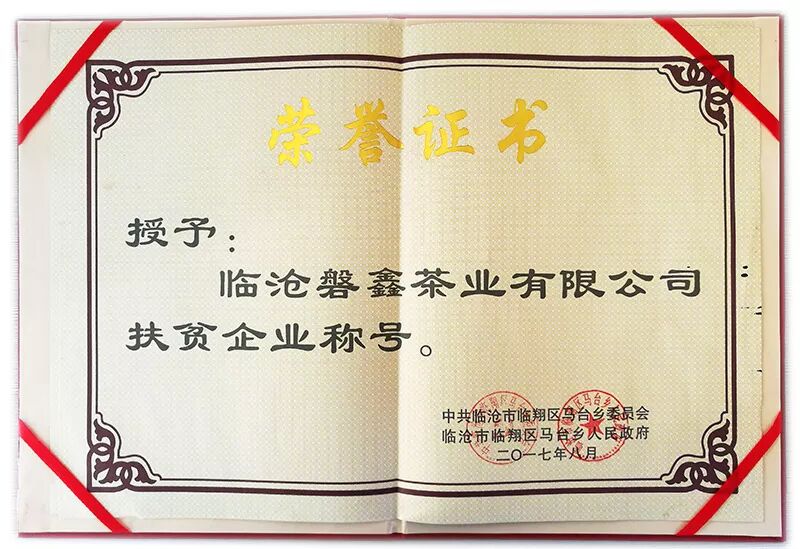 荣誉证书
授予：
临沧磐鑫茶业有限公司
扶贫企业称号。
中共临沧市临翔区马台乡委员会
临沧市临翔区马台乡人民政府
二〇一七年八月